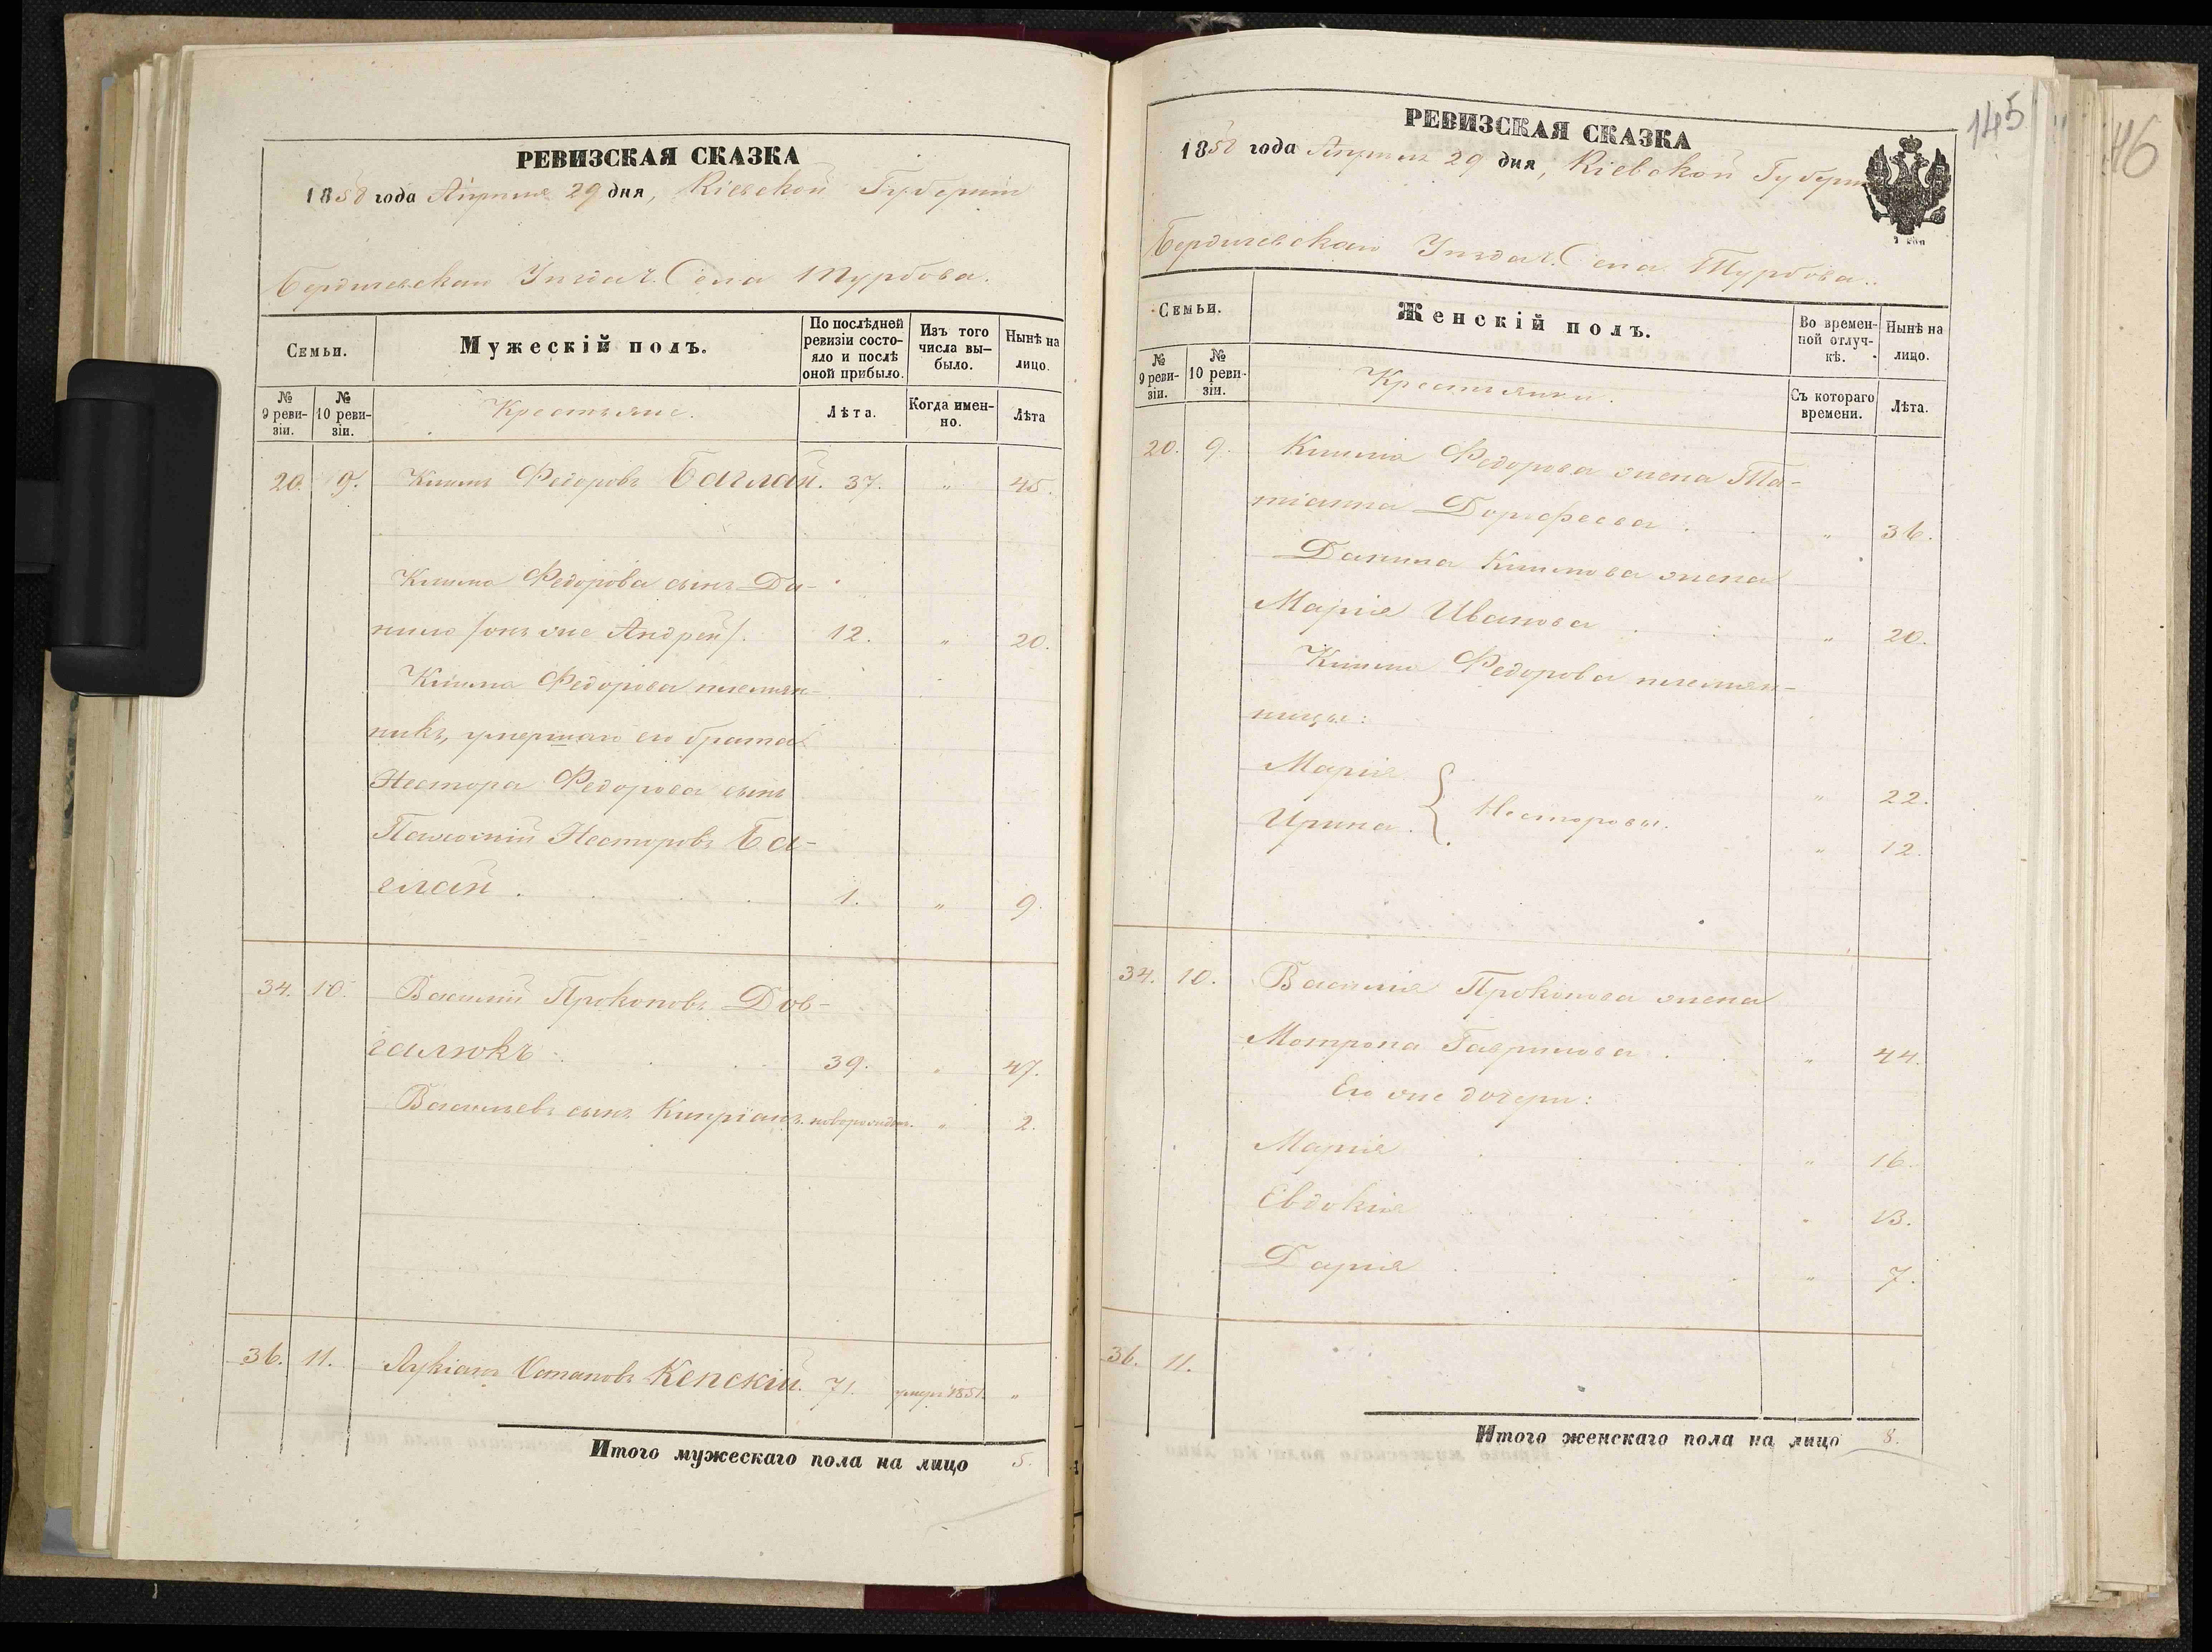 РЕВИЗСКАЯ СКАЗКА
1858 года Апреля 29 дня, Кіевской Губерніи
Бердичевскаго Уѣзда Села Турбова.
Семьи.
Мужескій полъ.
По послѣдней ревизіи состояло и послѣ оной прибыло.
Изъ того числа выбыло.
Нынѣ на лицо.
№ 9 ревизіи.
№ 10 ревизіи.
Крестьяне.
Лѣта.
Когда именно.
Лѣта
20. 9. Климъ Федоровъ Баглай. 37. " 45.
Клима Федорова сынъ Да-
нило /онъ же Андрей/. 12. " 20.
Клима Федорова племян-
никъ, умершаго его брата
Нестора Федорова сынъ
Несторовъ Ба-
глай . 1. " 9.
34. 10. Василий Прокоповъ Дов-
галюкъ 39. " 47.
Васильевъ сынъ Кипріанъ. новорожден. " 2.
36. 11. Лукіанъ Остаповъ Кепскій. 71. умеръ 1851. "
Итого мужескаго пола на лицо 5.
145
46
РЕВИЗСКАЯ СКАЗКА
1858 года Апреля 29 дня, Кіевской Губерніи
Бердичевскаго Уѣзда Села Турбова.
Семьи.
Женскій полъ.
Во временной отлучкѣ.
Нынѣ на лицо.
№ 9 ревизіи.
№ 10 ревизіи.
Крестьянки.
Съ котораго времени.
Лѣта.
20. 9. Клима Федорова жена Та-
тіанна Дорофеева . " 36.
Данила Климова жена
Марія Иванова . " 20.
Клима Федорова племян-
ницы:
Марія " 22.
Ирина. } Несторовы. " 12.
34. 10. Василія Прокопова жена
Мотрона Гаврилова . " 44.
Его же дочери:
Марія " 16.
Евдокія " 13.
Дарія " 7.
36. 11.
Итого женскаго пола на лицо 8.